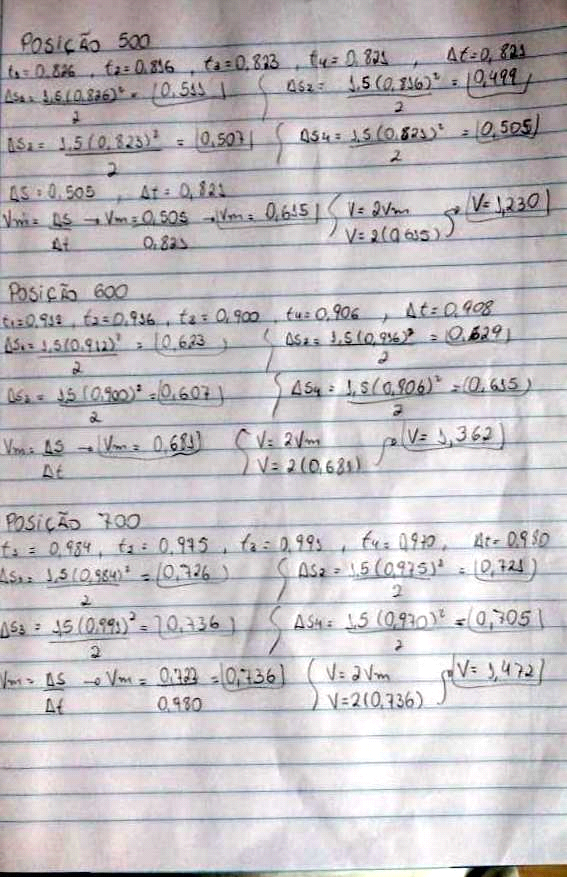 POSIÇÃO 500
t₁=0,826 , t₂=0,816 , t₃=0,823 , t₄=0,821 , Δt=0,821
ΔS₁=1,5(0,826)²/2 = 0,511 { ΔS₂= 1,5(0,816)²/2 = 0,499
ΔS₃=1,5(0,823)²/2 = 0,507 { ΔS₄= 1,5(0,821)²/2 = 0,505
ΔS=0,505 , Δt=0,821
Vm=ΔS/Δt → Vm=0,505/0,821 → Vm=0,615 { V=2Vm
V=2(0,615) → V=1,230
POSIÇÃO 600
t₁=0,912, t₂=0,916, t₃=0,900, t₄=0,906 , Δt=0,908
ΔS₁=1,5(0,912)²/2 = 0,623 { ΔS₂=1,5(0,916)²/2 = 0,629
ΔS₃=1,5(0,900)²/2 = 0,607 { ΔS₄=1,5(0,906)²/2 = 0,615
Vm=ΔS/Δt → Vm=0,681 { V=2Vm
V=2(0,681) → V=1,362
POSIÇÃO 700
t₁=0,984, t₂=0,975, t₃=0,991, t₄=0,970, Δt=0,980
ΔS₁=1,5(0,984)²/2 = 0,726 { ΔS₂=1,5(0,975)²/2 = 0,721
ΔS₃=1,5(0,991)²/2 = 0,736 { ΔS₄=1,5(0,970)²/2 = 0,705
Vm=ΔS/Δt → Vm=0,722/0,980 = 0,736 { V=2Vm
V=2(0,736) → V=1,472